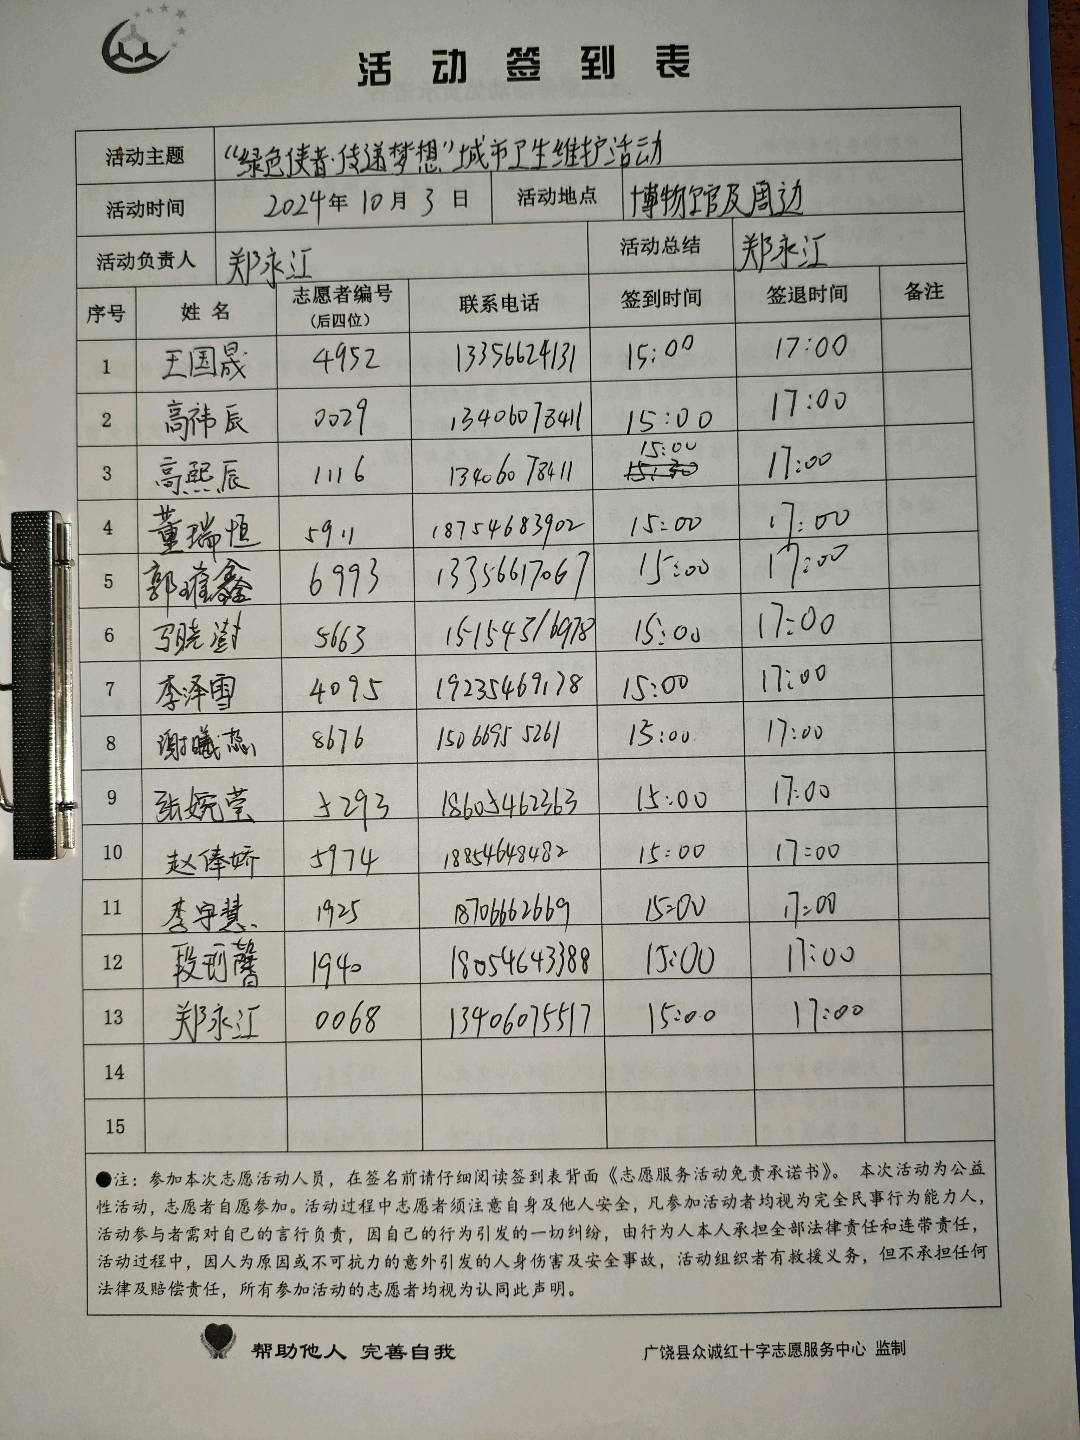 活动签到表
活动主题 “绿色使者·传递梦想”城市卫生维护活动
活动时间 2024年10月3日 活动地点 博物馆及周边
活动负责人 郑永江 活动总结 郑永江
序号 姓名 志愿者编号(后四位) 联系电话 签到时间 签退时间 备注
1 王国晟 4952 13356624131 15:00 17:00
2 高祎辰 0029 13406078411 15:00 17:00
3 高熙辰 1116 13406078411 15:00 17:00
4 董瑞恒 5911 18754683902 15:00 17:00
5 郭璀鑫 6993 13356617067 15:00 17:00
6 马晓澍 5663 15154316978 15:00 17:00
7 李泽雪 4095 19235469178 15:00 17:00
8 谢曦蕊 8676 15066955261 15:00 17:00
9 张婉莹 5293 18605462363 15:00 17:00
10 赵俸娇 5974 18854648482 15:00 17:00
11 李宇慧 1925 18706662669 15:00 17:00
12 段玥馨 1940 18054643388 15:00 17:00
13 郑永江 0068 13406075517 15:00 17:00
14
15
●注：参加本次志愿活动人员，在签名前请仔细阅读签到表背面《志愿服务活动免责承诺书》。 本次活动为公益
性活动，志愿者自愿参加。活动过程中志愿者须注意自身及他人安全，凡参加活动者均视为完全民事行为能力人，
活动参与者需对自己的言行负责，因自己的行为引发的一切纠纷，由行为人本人承担全部法律责任和连带责任，
活动过程中，因人为原因或不可抗力的意外引发的人身伤害及安全事故，活动组织者有救援义务，但不承担任何
法律及赔偿责任，所有参加活动的志愿者均视为认同此声明。
帮助他人 完善自我 广饶县众诚红十字志愿服务中心 监制